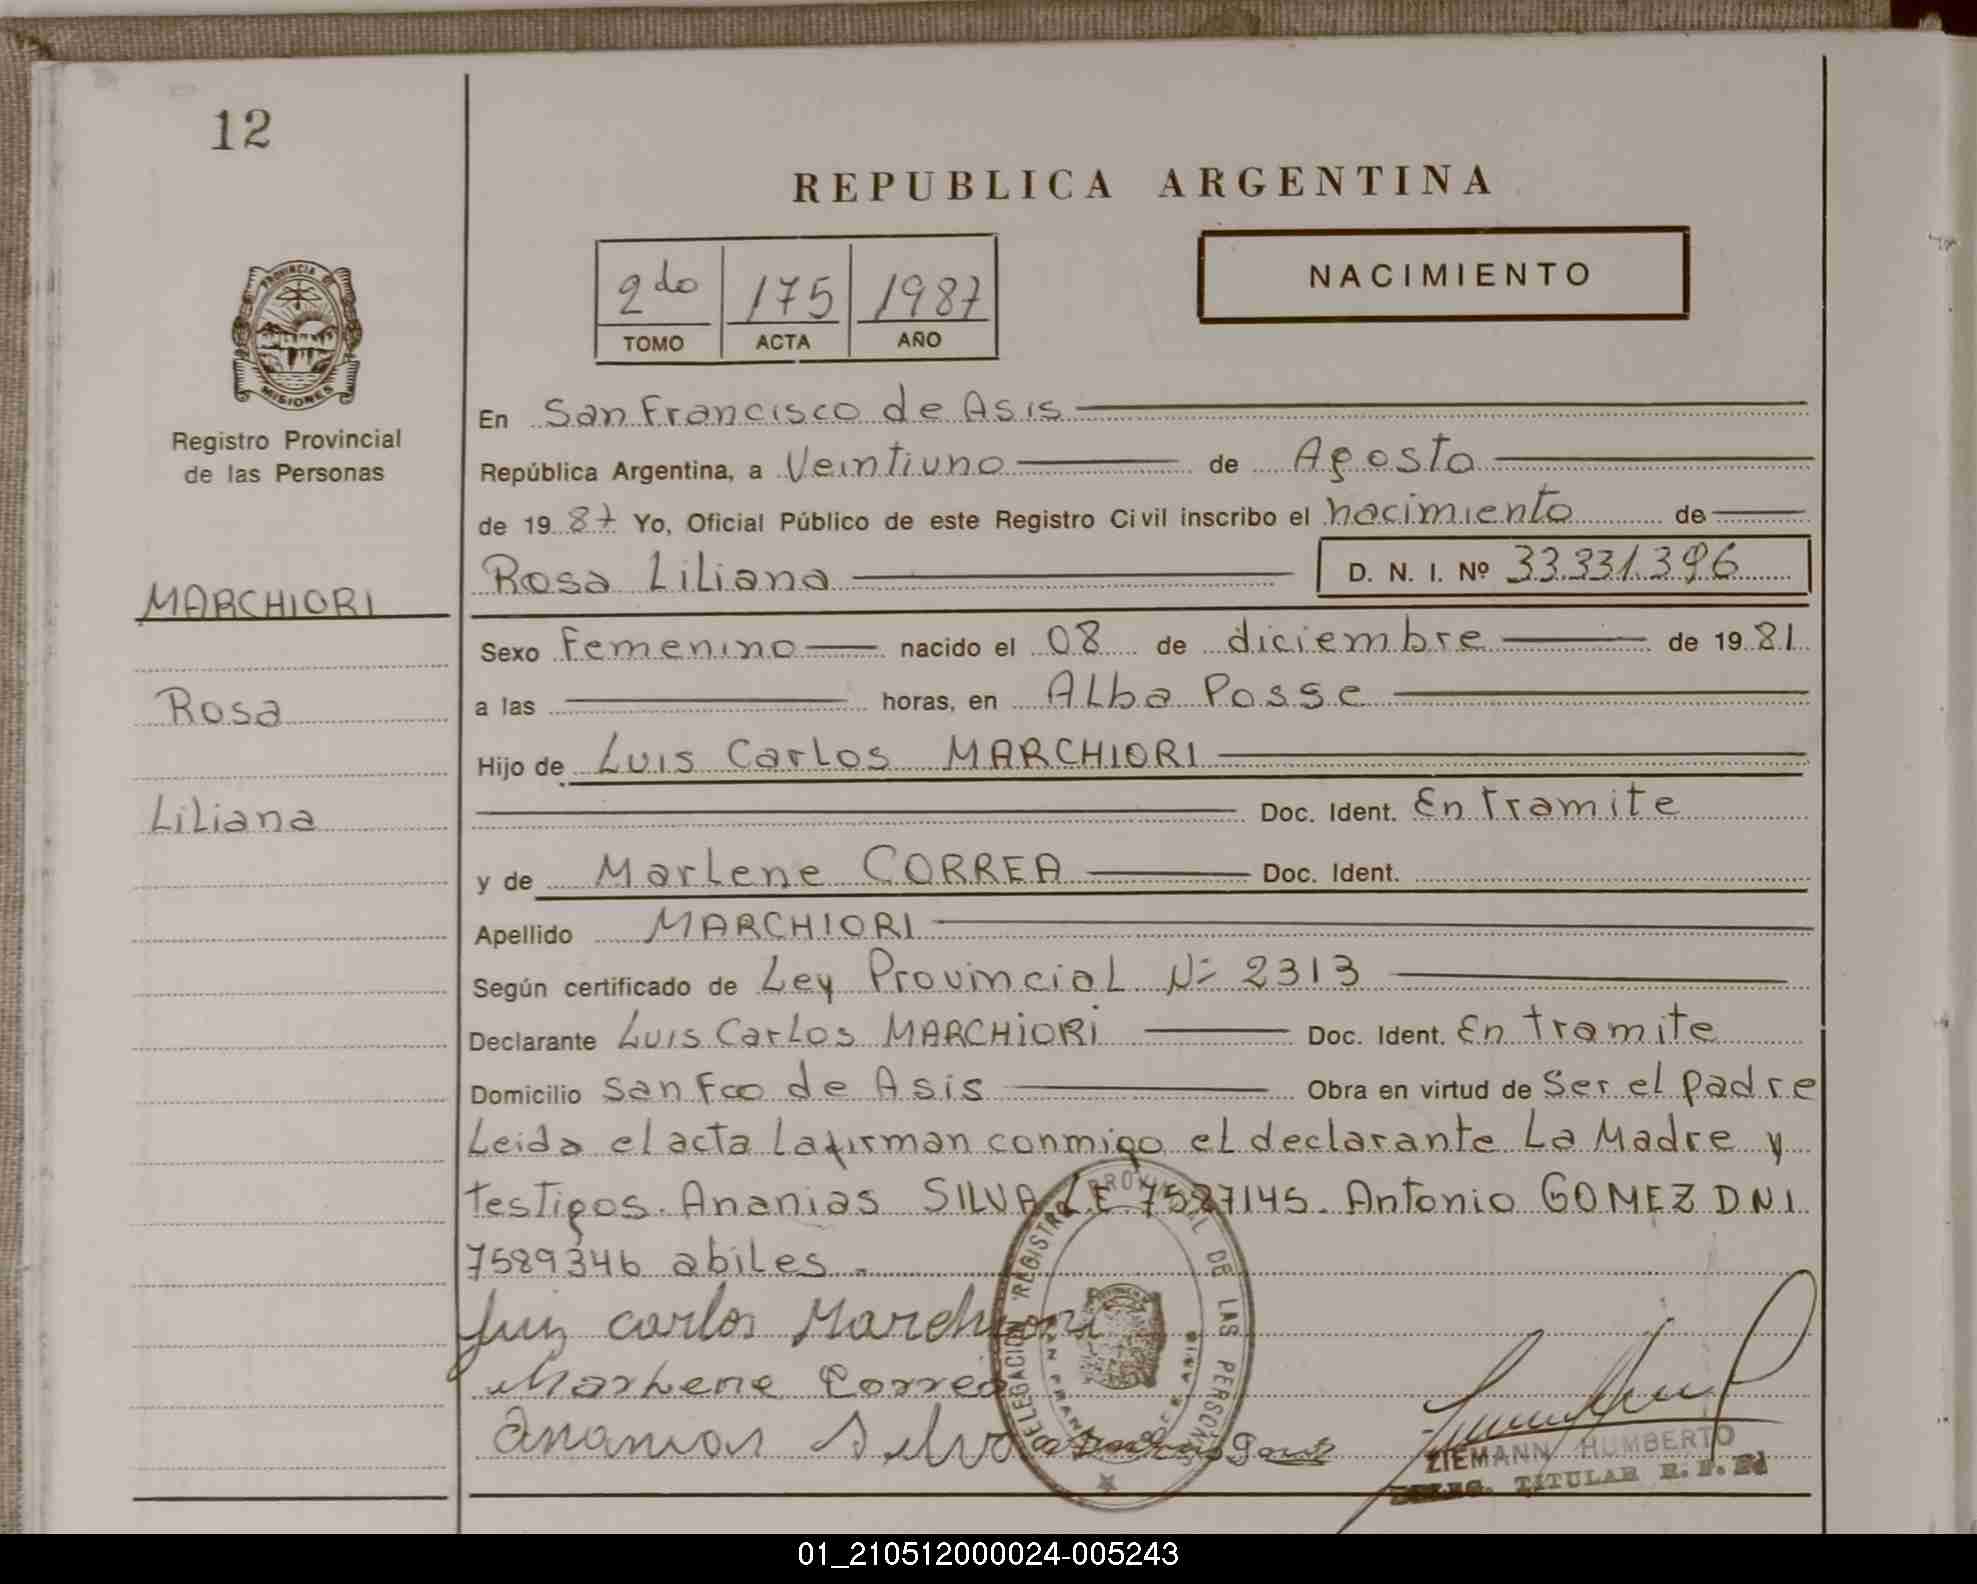 12
REPUBLICA ARGENTINA
2do 175 1987
TOMO ACTA AÑO
NACIMIENTO
PROVINCIA DE MISIONES
Registro Provincial
de las Personas
MARCHIORI
Rosa
Liliana
En San Francisco de Asis
República Argentina, a Veintiuno de Agosto
de 1987 Yo, Oficial Público de este Registro Civil inscribo el nacimiento de
Rosa Liliana D. N. I. Nº 33.331.396
Sexo Femenino nacido el 08 de diciembre de 1981
a las horas, en Alba Posse
Hijo de Luis Carlos MARCHIORI
Doc. Ident. En tramite
y de Marlene CORREA Doc. Ident.
Apellido MARCHIORI
Según certificado de Ley Provincial Nº 2313
Declarante Luis Carlos MARCHiORi Doc. Ident. En tramite
Domicilio San Fco de Asis Obra en virtud de Ser el padre
Leida el acta La firman conmigo el declarante La Madre y
testigos. Ananias SILVA L.E 7587145. Antonio GOMEZ D.N.I.
7589346 abiles.
Luiz carlos Marchiori
Marlene Correa
Ananias Silva
DELEGACION REGISTRO PROVINCIAL DE LAS PERSONAS
SAN FRANCISCO DE ASIS
ZIEMANN HUMBERTO
DELEG. TITULAR R.P.
01_210512000024-005243